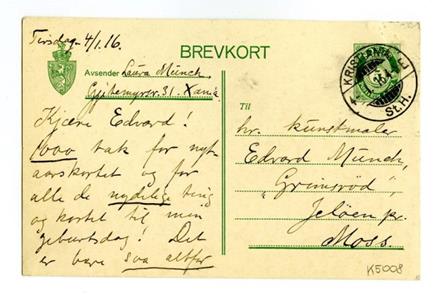 Tirsdag 4/1.16.
BREVKORT
Avsender Laura Munch,
31. Xania
Kjære Edvard!
1000 tak for nyt-
aarskortet og for
alle de nydelige ting
og kortet til min
geburtsdag! Det
er bare saa altfor
KRISTIANIA
St.H.
Til
hr. kunstmaler
Edvard Munch,
"Grimsrød",
Jeløen pr.
Moss.
K5008